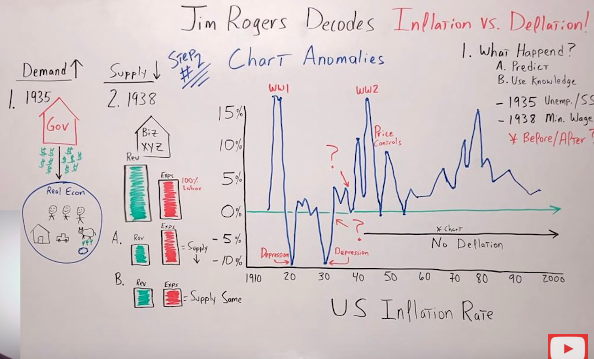 Jim Rogers Decodes Inflation vs. Deflation!
Step #2
Chart Anomalies
Demand ↑
1. 1935
Gov
Real Econ
Supply ↓
2. 1938
Biz
XYZ
Rev
Exps
100%
Labor
A.
Rev
Exps
= Supply ↓
B.
Rev
Exps
= Supply Same
WW1
WW2
Price
Controls
?
?
15%
10%
5%
0%
-5%
-10%
Depression
Depression
* Chart
No Deflation
1910 20 30 40 50 60 70 80 90 2000
US Inflation Rate
1. What Happend?
A. Predict
B. Use Knowledge
- 1935 Unemp./SS
- 1938 Min. Wage
* Before/After?